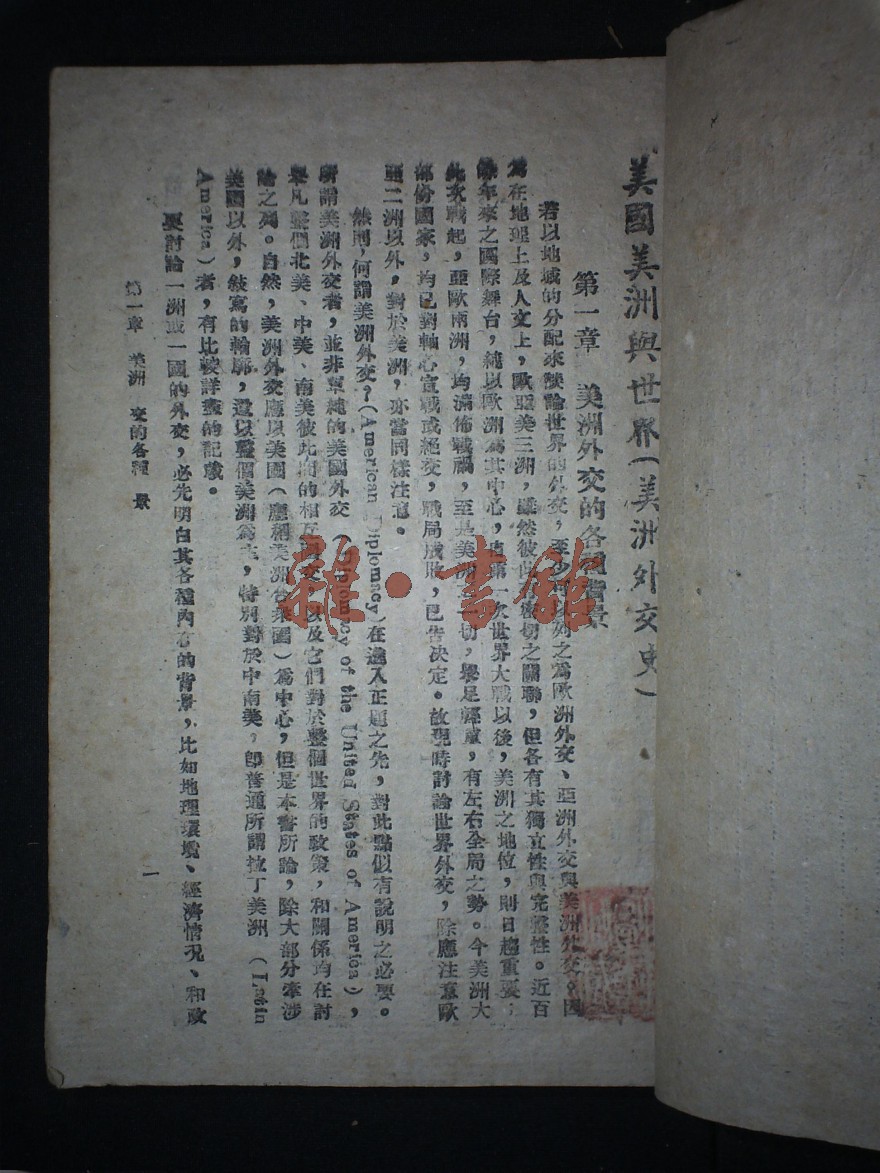 美國美洲與世界(美洲外交史)
第一章 美洲外交的各種背景
若以地域的分配來談論世界的外交,至少可以列之為歐洲外交、亞洲外交與美洲外交。因
為在地理上及人文上,歐亞美三洲,雖然彼此密切之關聯,但各有其獨立性與完整性。近百
餘年來之國際舞台,純以歐洲為其中心,自第一次世界大戰以後,美洲之地位,則日趨重要;
此次戰起,亞歐兩洲,均滿佈戰禍,至是美洲一切,舉足輕重,有左右全局之勢。今美洲大
部份國家,均已對軸心宣戰或絕交,戰局成敗,已告決定。故現時討論世界外交,除應注意歐
亞二洲以外,對於美洲,亦當同樣注意。
然則,何謂美洲外交?(American Diplomncy)在進入正題之先,對此點似有說明之必要。
所謂美洲外交者,並非單純的美國外交(Diplomncy of the United States of America),
舉凡整個北美、中美、南美彼此間的相互外交,以及它們對於整個世界的政策,和關係均在討
論之列。自然,美洲外交應以美國(應稱美洲合眾國)為中心,但是本書所論,除大部分牽涉
美國以外,敍寫的輪廓,還以整個美洲為主,特別對於中南美,即普通所謂拉丁美洲(Latin
America)者,有比較詳盡的記載。
要討論一洲或一國的外交,必先明白其各種內在的背景,比如地理環境、經濟情况、和政
第一章 美洲 交的各種 景
一
雜·書館